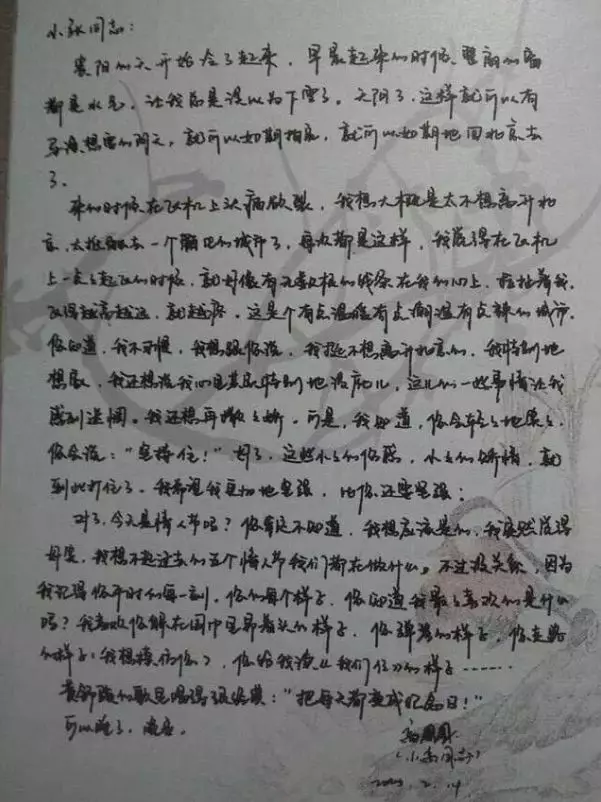 小张同志：
襄阳的天开始冷了起来，早晨起来的时候，整扇的窗
都是水气，让我总是误以为下雪了。天阴了，这样就可以有
导演想要的阴天，就可以如期拍完，就可以如期地回北京去
了。
来的时候在飞机上头痛欲裂，我想大概是太不想离开北
京，去一个陌生的城市了，每次都是这样，我觉得在飞机
上一点点起飞的时候，就好像有无数根的线系在我的心上，拉扯着我，
飞得越高越远，就越疼。这是个有点温暖有点潮湿有点辣的城市，
你知道，我不习惯，我想跟你说，我挺不想离开北京的，我特别地
想家，我还想说我心里其实特别地没底儿，这儿的一些事情让我
感到迷惘。我还想再撒撒娇。可是，我知道，你会轻轻地
你会说："坚持住！"好了，这些小小的伤感，小小的矫情，就
到此打住了。我希望我更加地坚强，比你还要坚强；
对了，今天是情人节吗？你肯定不知道，我想应该是的，我突然觉得
我想不起过去的五个情人节我们都在做什么。不过没关系，因为
我记得你平时的每一刻，你的每个样子，你知道我最喜欢的是什么
吗？我喜欢你的样子，你弹琴的样子，你走路
的样子（我想模仿你），你给我读《我们仨》的样子……
黄舒骏的歌里唱得很好："把每天都变成纪念日！"
可以睡了，晚安。
（小高同志）
2.14